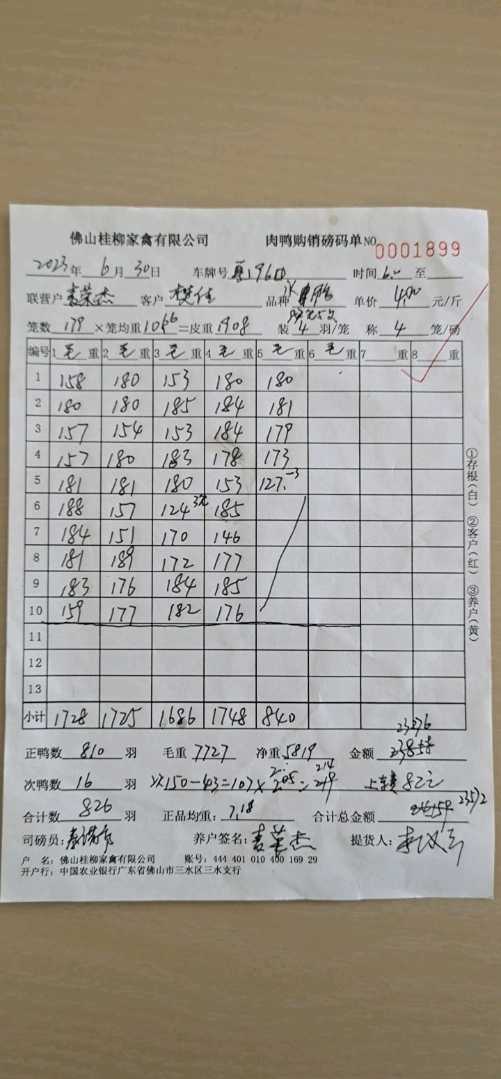 佛山桂柳家禽有限公司 肉鸭购销磅码单 NO 0001899
2023年 6月 30日 车牌号 196 时间 6:00 至
联营户 麦荣杰 客户 品种 单价 4.00 元/斤
笼数 179 ×笼均重 10.66 =皮重 1908 装 4 羽/笼 称 4 笼/磅
编号 1 毛 重 2 毛 重 3 毛 重 4 毛 重 5 毛 重 6 毛 重 7 重 8 重
1 158 180 153 180 180
2 180 180 185 184 181
3 157 154 153 184 179
4 157 180 183 178 173
5 181 181 180 153 127 -3
6 188 157 124 185
7 184 151 170 146
8 181 189 172 177
9 183 176 184 185
10 159 177 182 176
11
12
13
小计 1728 1725 1686 1748 840
23276
正鸭数 810 羽 毛重 7727 净重 5819 金额
次鸭数 16 羽 次150-43=107× = 82
合计数 826 羽 正品均重: 7.18 合计总金额
司磅员: 养户签名: 麦荣杰 提货人:
户 名: 佛山桂柳家禽有限公司 账号: 444 401 010 400 169 29
开户行: 中国农业银行广东省佛山市三水区三水支行
①存根(白) ②客户(红) ③养户(黄)